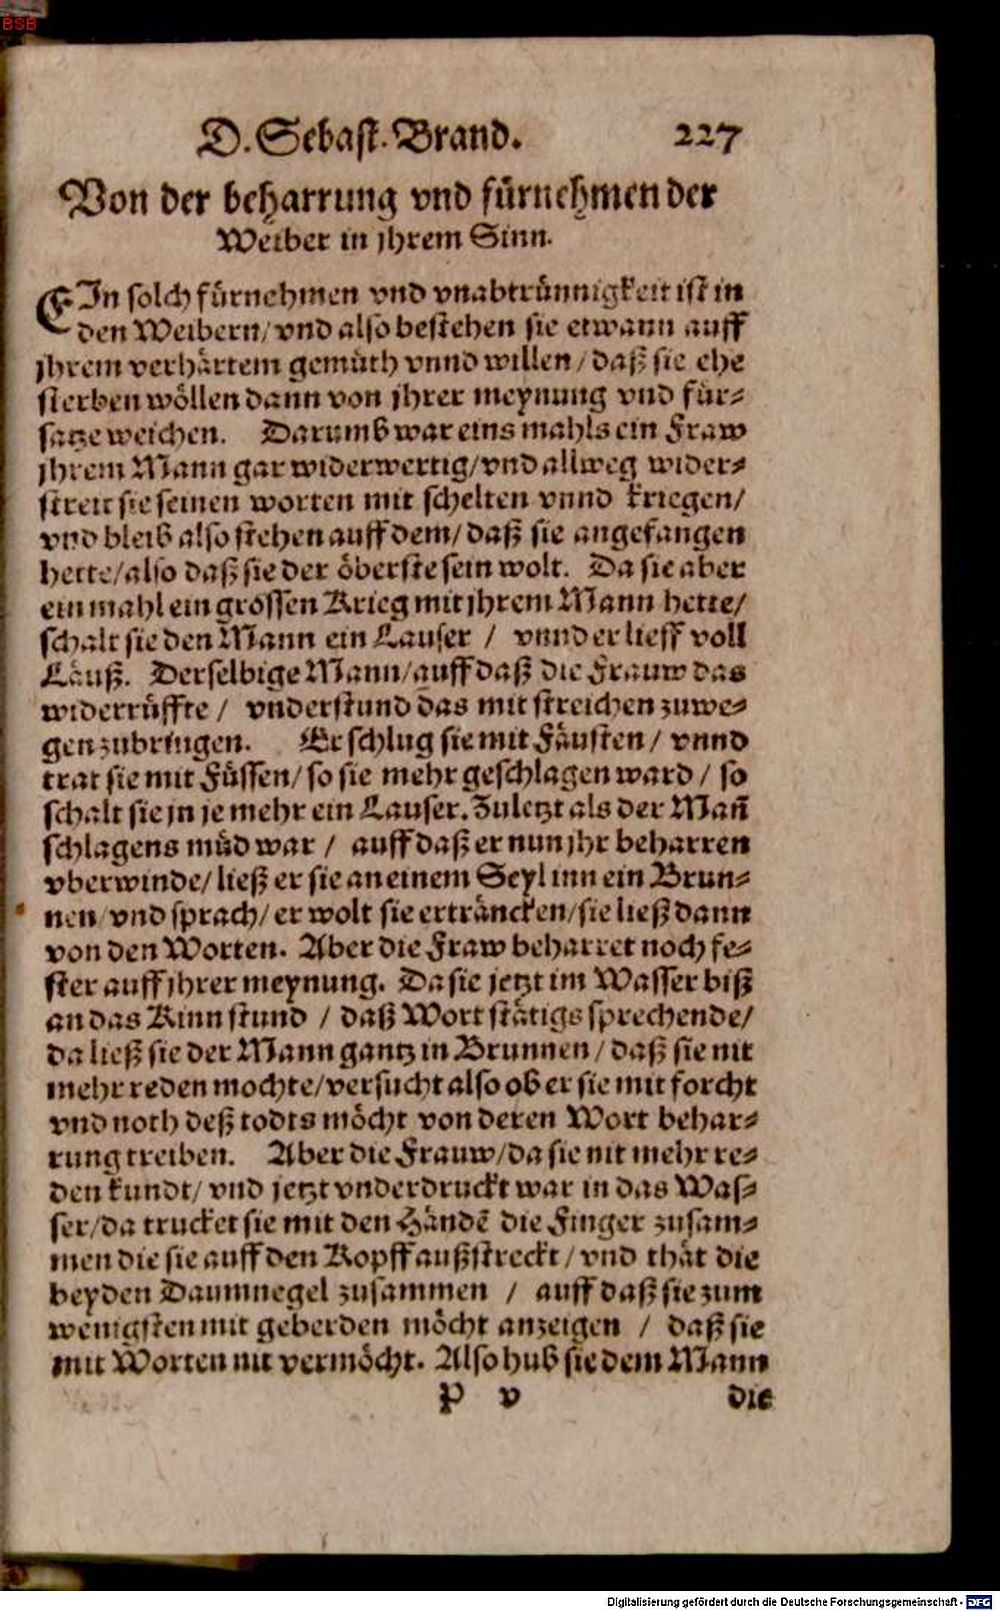 BSB
D. Sebast. Brand. 227
Von der beharrung vnd fürnehmen der
Weiber in jhrem Sinn.
EIn solch fürnehmen vnd vnabtrünnigkeit ist in
den Weibern/ vnd also bestehen sie etwann auff
jhrem verhärtem gemüth vnnd willen / daß sie ehe
sterben wöllen dann von jhrer meynung vnd für-
satze weichen. Darumb war eins mahls ein Fraw
jhrem Mann gar widerwertig/ vnd allweg wider-
streit sie seinen worten mit schelten vnnd kriegen/
vnd bleib also stehen auff dem/ daß sie angefangen
hette/ also daß sie der öberste sein wolt. Da sie aber
ein mahl ein grossen Krieg mit jhrem Mann hette/
schalt sie den Mann ein Lauser / vnnd er lieff voll
Läuß. Derselbige Mann/ auff daß die Frauw das
widerrüffte / vnderstund das mit streichen zuwe-
gen zubringen. Er schlug sie mit Fäusten / vnnd
trat sie mit Füssen/ so sie mehr geschlagen ward / so
schalt sie jn je mehr ein Lauser. Zuletzt als der Mañ
schlagens müd war / auff daß er nun jhr beharren
vberwinde/ ließ er sie an einem Seyl inn ein Brun-
nen/ vnd sprach/ er wolt sie eträncken/ sie ließ dann
von den Worten. Aber die Fraw beharret noch fe-
ster auff jhrer meynung. Da sie jetzt im Wasser biß
an das Kinn stund / daß Wort stätigs sprechende/
da ließ sie der Mann gantz in Brunnen / daß sie nit
mehr reden mochte/ versucht also ob er sie mit forcht
vnd noth deß todts möcht von deren Wort behar-
rung treiben. Aber die Frauw/ da sie nit mehr re-
den kundt/ vnd jetzt vnderdruckt war in das Was-
ser/ da trucket sie mit den Händē die Finger zusam-
men die sie auff den Kopff außstreckt / vnd thät die
beyden Daumnegel zusammen / auff daß sie zum
wenigsten mit geberden möcht anzeigen / daß sie
mit Worten nit vermöcht. Also hub sie dem Mann
P v die
Digitalisierung gefördert durch die Deutsche Forschungsgemeinschaft - DFG